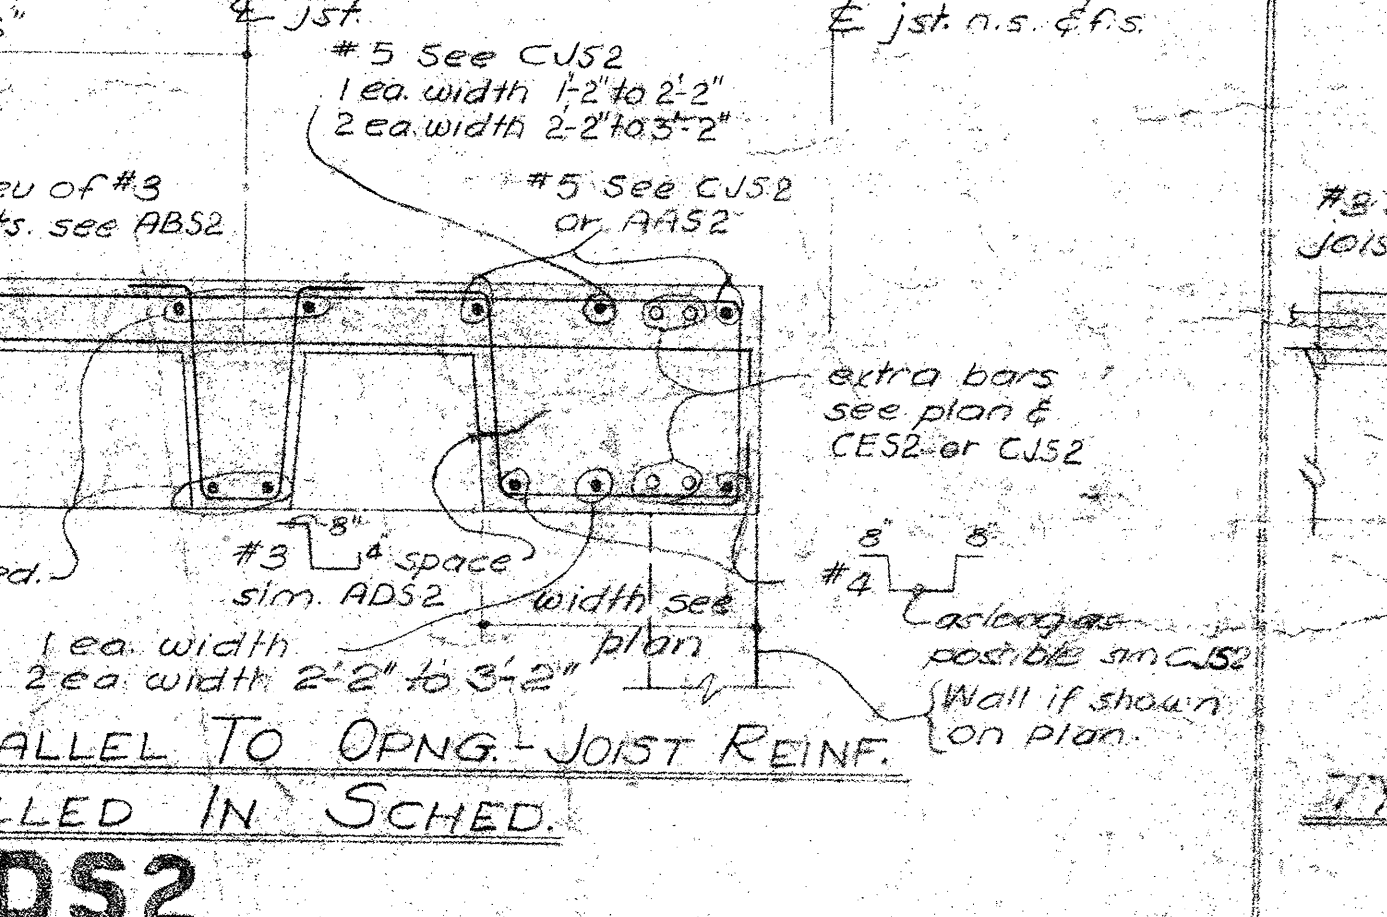 ℄ jst.
℄ jst. n.s. & f.s.
#5 See CJS2
1 ea. width 1'-2" to 2'-2"
2 ea. width 2'-2" to 3'-2"
eu of #3
ts. see ABS2
#5 See CJS2
or AAS2
#3
Jois
extra bars
see plan &
CES2 or CJS2
8"
#3 4" space
sim. ADS2
ed.
width see
plan
8" 8"
#4
as long as
possible sim CJS2
1 ea. width
2 ea. width 2'-2" to 3'-2"
Wall if shown
on plan.
ALLEL TO OPNG. - JOIST REINF.
LLED IN SCHED.
DS2
TY